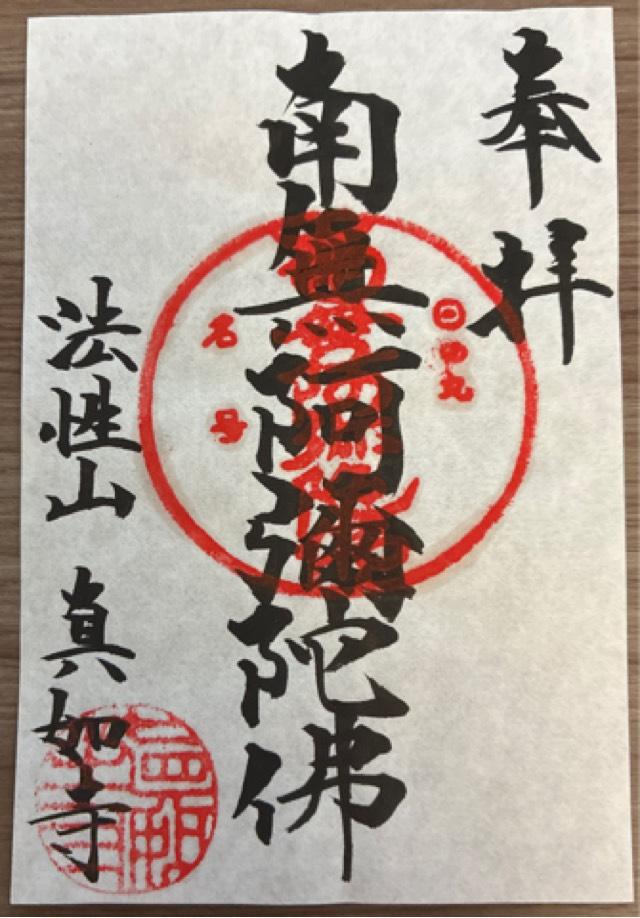 奉拝
日の丸
南無阿彌陀佛
名号
法性山 真如寺